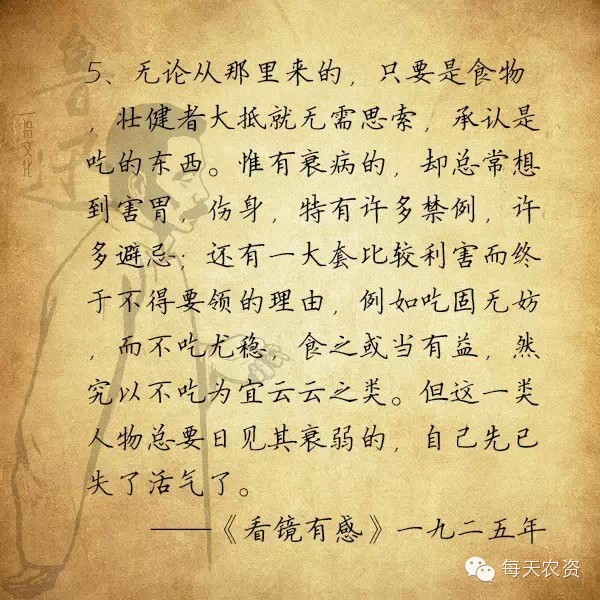 5、无论从那里来的，只要是食物
，壮健者大抵就无需思索，承认是
吃的东西。惟有衰病的，却总常想
到害胃，伤身，特有许多禁例，许
多避忌；还有一大套比较利害而终
于不得要领的理由，例如吃固无妨
，而不吃尤稳，食之或当有益，然
究以不吃为宜云云之类。但这一类
人物总要日见其衰弱的，自己先已
失了活气了。
——《看镜有感》一九二五年
鲁迅
一拾文化
每天农资